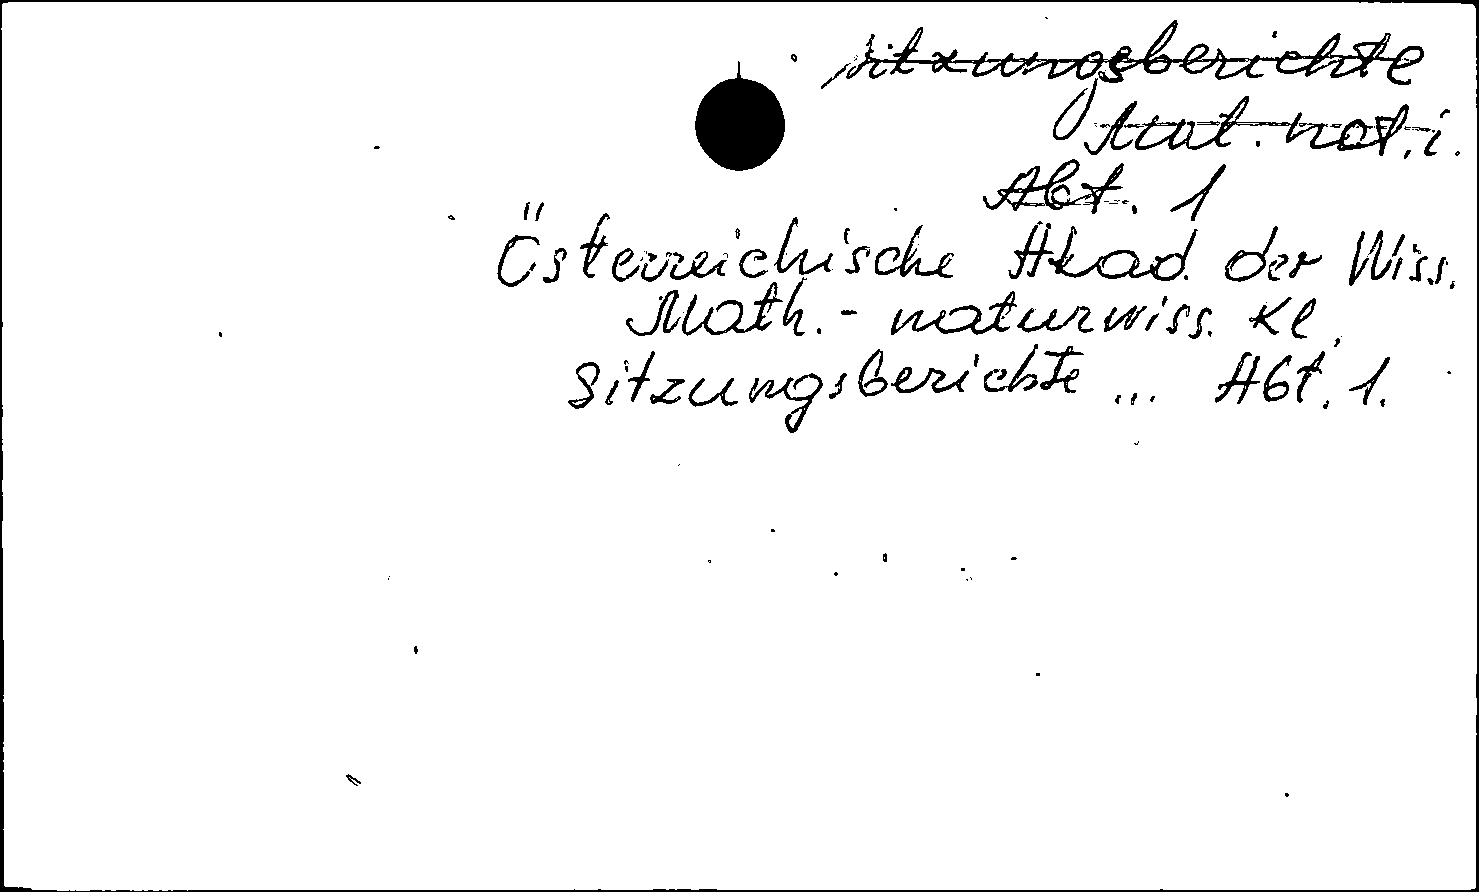 Sitzungsberichte
Mat. nat. i.
Abt. 1
Österreichische Akad. der Wiss.
Math.- naturwiss. Kl.
Sitzungsberichte ... Abt. 1.